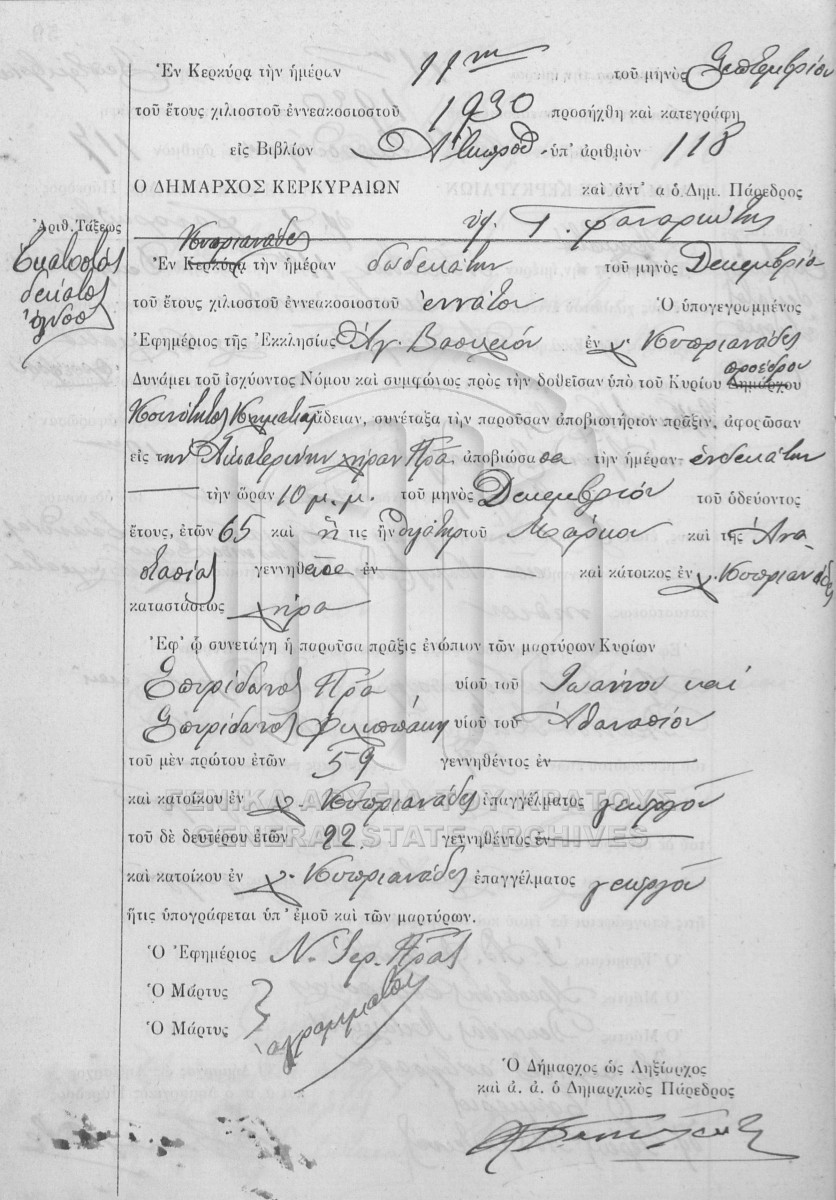 Ἐν Κερκύρᾳ τὴν ἡμέραν 11ην τοῦ μηνὸς Σεπτεμβρίου
τοῦ ἔτους χιλιοστοῦ ἐννεακοσιοστοῦ 1930 προσήχθη καὶ κατεγράφη
εἰς Βιβλίον ὑπ' ἀριθμὸν 118
Ο ΔΗΜΑΡΧΟΣ ΚΕΡΚΥΡΑΙΩΝ καὶ ἀντ' α ὁ Δημ. Πάρεδρος
Ἀριθ. Τάξεως
Ἑκατοστὸς
δέκατος
ὄγδοος
Κυπριανάδες
Ἐν Κερκύρᾳ τὴν ἡμέραν δωδεκάτην τοῦ μηνὸς Δεκεμβρίου
τοῦ ἔτους χιλιοστοῦ ἐννεακοσιοστοῦ ἐννάτου Ὁ ὑπογεγραμμένος
Ἐφημέριος τῆς Ἐκκλησίας Ἁγ. Βασιλείου ἐν χ. Κυπριανάδες
προέδρου
Δυνάμει τοῦ ἰσχύοντος Νόμου καὶ συμφώνως πρὸς τὴν δοθεῖσαν ὑπὸ τοῦ Κυρίου Δημάρχου
Κοινότητος ἄδειαν, συνέταξα τὴν παροῦσαν ἀποβιωτήριον πρᾶξιν, ἀφορῶσαν
εἰς τὴν Αἰκατερίνην χήραν Πρᾶ, ἀποβιώσασα τὴν ἡμέραν ἑνδεκάτην
τὴν ὥραν 10 μ.μ. τοῦ μηνὸς Δεκεμβρίου τοῦ ὁδεύοντος
ἔτους, ἐτῶν 65 καὶ ἥ τις ἦν θυγάτηρ τοῦ Μάρκου καὶ τῆς Ἀνα-
στασίας γεννηθεῖσα ἐν καὶ κάτοικος ἐν χ. Κυπριανάδες
καταστάσεως χήρα
Ἐφ' ᾧ συνετάγη ἡ παροῦσα πρᾶξις ἐνώπιον τῶν μαρτύρων Κυρίων
Σπυρίδωνος Πρᾶ υἱοῦ τοῦ Ἰωάννου καὶ
Σπυρίδωνος Φιλιππάκη υἱοῦ τοῦ Ἀθανασίου
τοῦ μὲν πρώτου ἐτῶν 59 γεννηθέντος ἐν
καὶ κατοίκου ἐν χ. Κυπριανάδες ἐπαγγέλματος γεωργοῦ
ΓΕΝΙΚΑ ΑΡΧΕΙΑ ΤΟΥ ΚΡΑΤΟΥΣ
GENERAL STATE ARCHIVES
τοῦ δὲ δευτέρου ἐτῶν 22 γεννηθέντος ἐν
καὶ κατοίκου ἐν χ. Κυπριανάδες ἐπαγγέλματος γεωργοῦ
ἥτις ὑπογράφεται ὑπ' ἐμοῦ καὶ τῶν μαρτύρων.
Ὁ Ἐφημέριος Ν. Ἱερ. Πρᾶς
Ὁ Μάρτυς
Ὁ Μάρτυς ἀγράμματοι
Ὁ Δήμαρχος ὡς Ληξίαρχος
καὶ ἀ. ἀ. ὁ Δημαρχικὸς Πάρεδρος